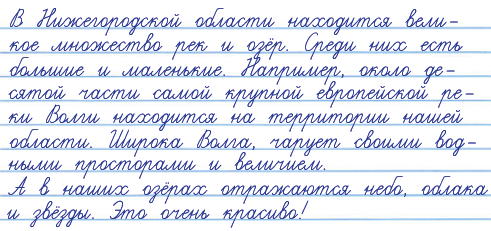 В Нижегородской области находится вели-
кое множество рек и озёр. Среди них есть
большие и маленькие. Например, около де-
сятой части самой крупной европейской ре-
ки Волги находится на территории нашей
области. Широка Волга, чарует своими вод-
ными просторами и величием.
А в наших озёрах отражаются небо, облака
и звёзды. Это очень красиво!